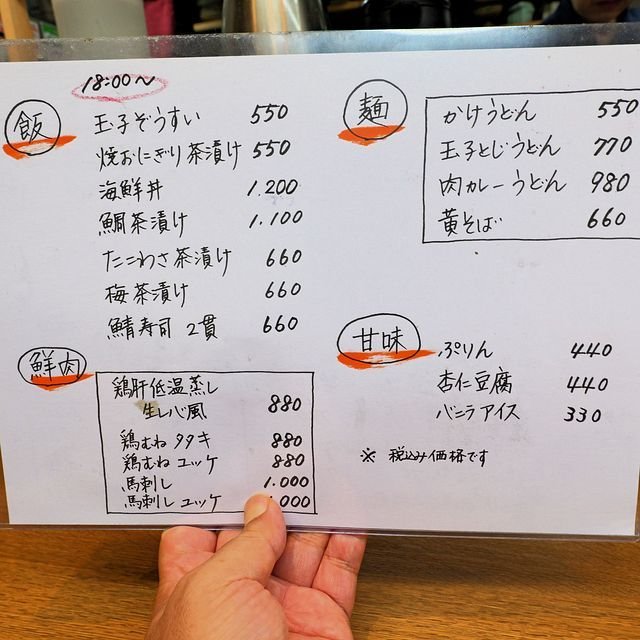 18:00〜
飯
玉子ぞうすい 550
焼おにぎり茶漬け 550
海鮮丼 1.200
鯛茶漬け 1.100
たこわさ茶漬け 660
梅茶漬け 660
鯖寿司 2貫 660
鮮肉
鶏肝低温蒸し
生レバ風 880
鶏むねタタキ 880
鶏むねユッケ 880
馬刺し 1.000
馬刺しユッケ .000
麺
かけうどん 550
玉子とじうどん 770
肉カレーうどん 980
黄そば 660
甘味
ぷりん 440
杏仁豆腐 440
バニラアイス 330
※ 税込み価格です